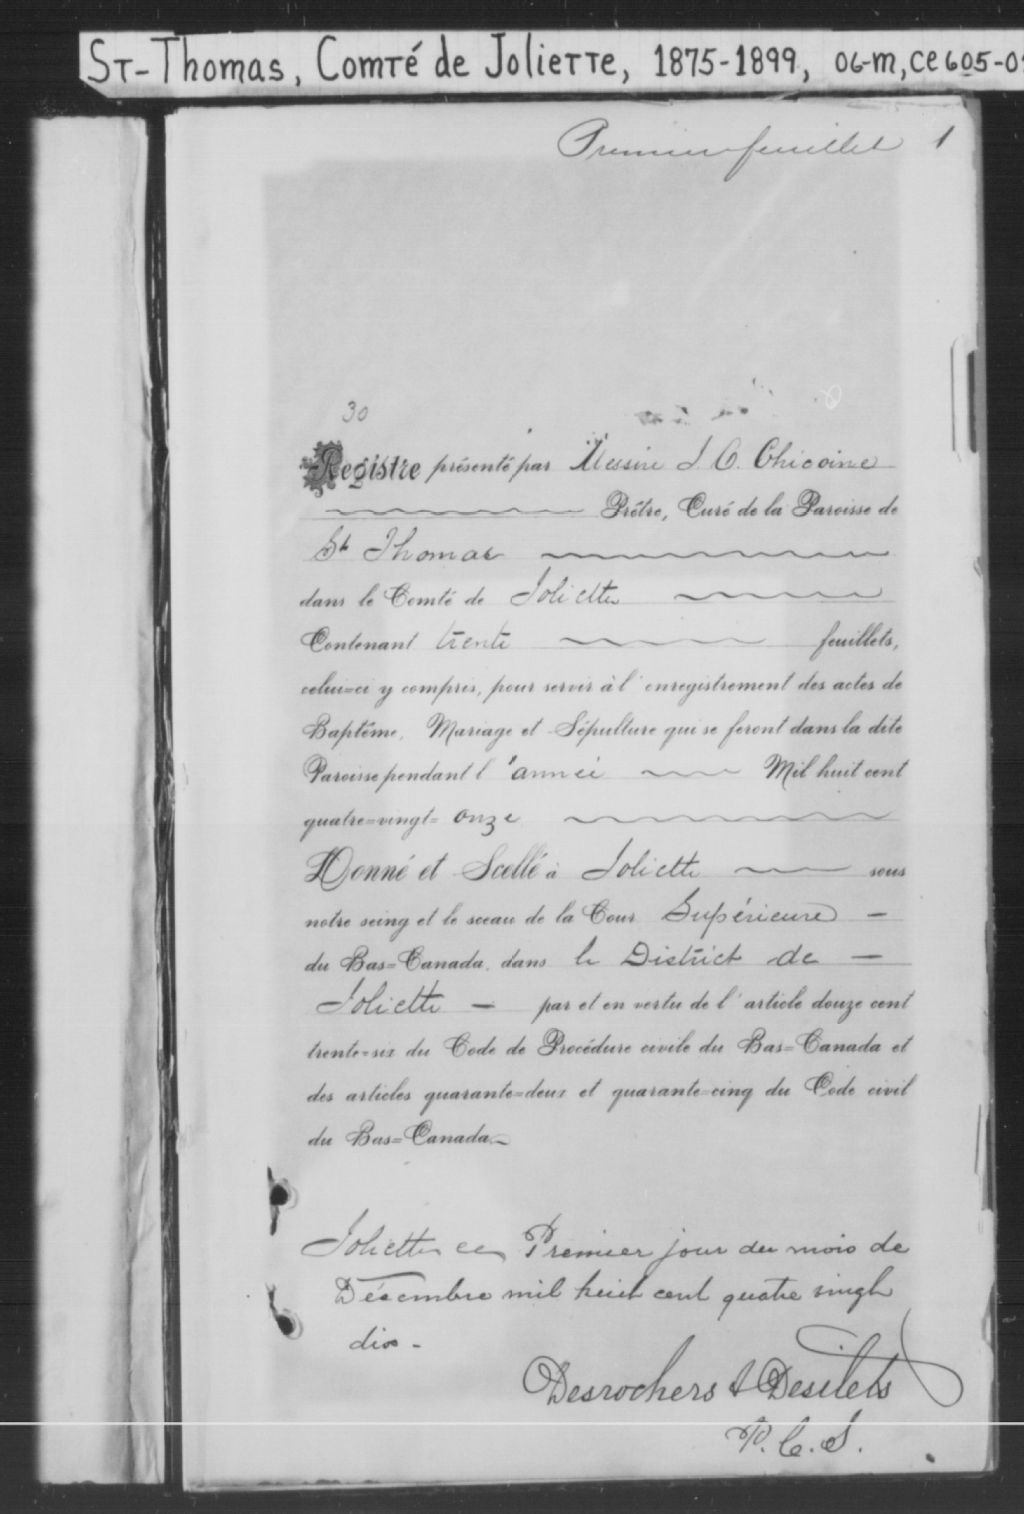 ST-Thomas, Comté de Joliette, 1875-1899, 06-M, CE605-0
Premier feuillet 1
30
Registre présenté par Messire J. O. Chicoine
Prêtre, Curé de la Paroisse de
St Thomas
dans le Comté de Joliette
Contenant trente feuillets,
celui=ci y compris, pour servir à l'enregistrement des actes de
Baptême, Mariage et Sépulture qui se feront dans la dite
Paroisse pendant l'année Mil huit cent
quatre=vingt= onze
Donné et Scellé à Joliette sous
notre seing et le sceau de la Cour Supérieure -
du Bas=Canada, dans le District de -
Joliette - par et en vertu de l'article douze cent
trente=six du Code de Procédure civile du Bas=Canada et
des articles quarante=deux et quarante=cinq du Code civil
du Bas=Canada.
Joliette ce Premier jour du mois de
Décembre mil huit cent quatre vingt
dix -
Desrochers & Desilets
P. C. S.